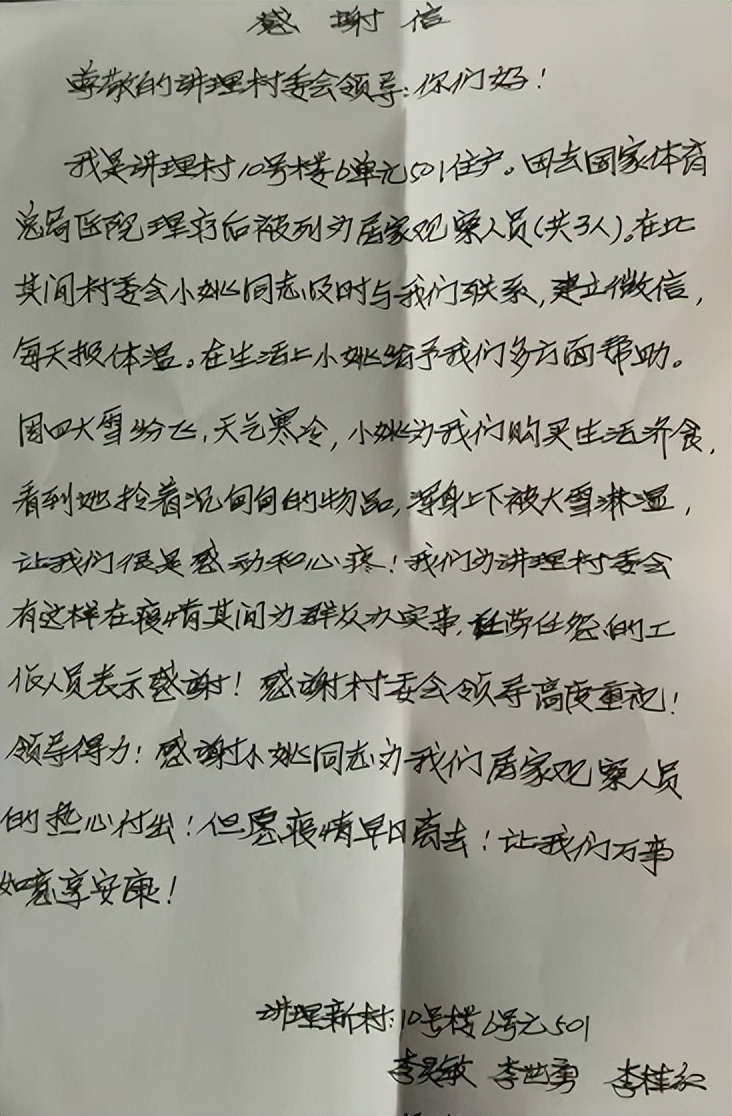 感谢信
尊敬的讲理村委会领导:你们好!
我是讲理村10号楼6单元501住户。因去国家体育
总局医院理疗后被列为居家观察人员(共3人)。在此
其间村委会小姚同志及时与我们联系,建立微信,
每天报体温。在生活上小姚给予我们多方面帮助。
周四大雪纷飞,天气寒冷,小姚为我们购买生活济食,
看到她拎着沉甸甸的物品,浑身上下被大雪淋湿,
让我们很是感动和心疼!我们为讲理村委会
有这样在疫情其间为群众办实事,任劳任怨的工
作人员表示感谢!感谢村委会领导高度重视!
领导得力!感谢小姚同志为我们居家观察人员
的热心付出!但愿疫情早日离去!让我们万事
如意享安康!
讲理新村:10号楼6号元501
李敏 李世勇 李桂